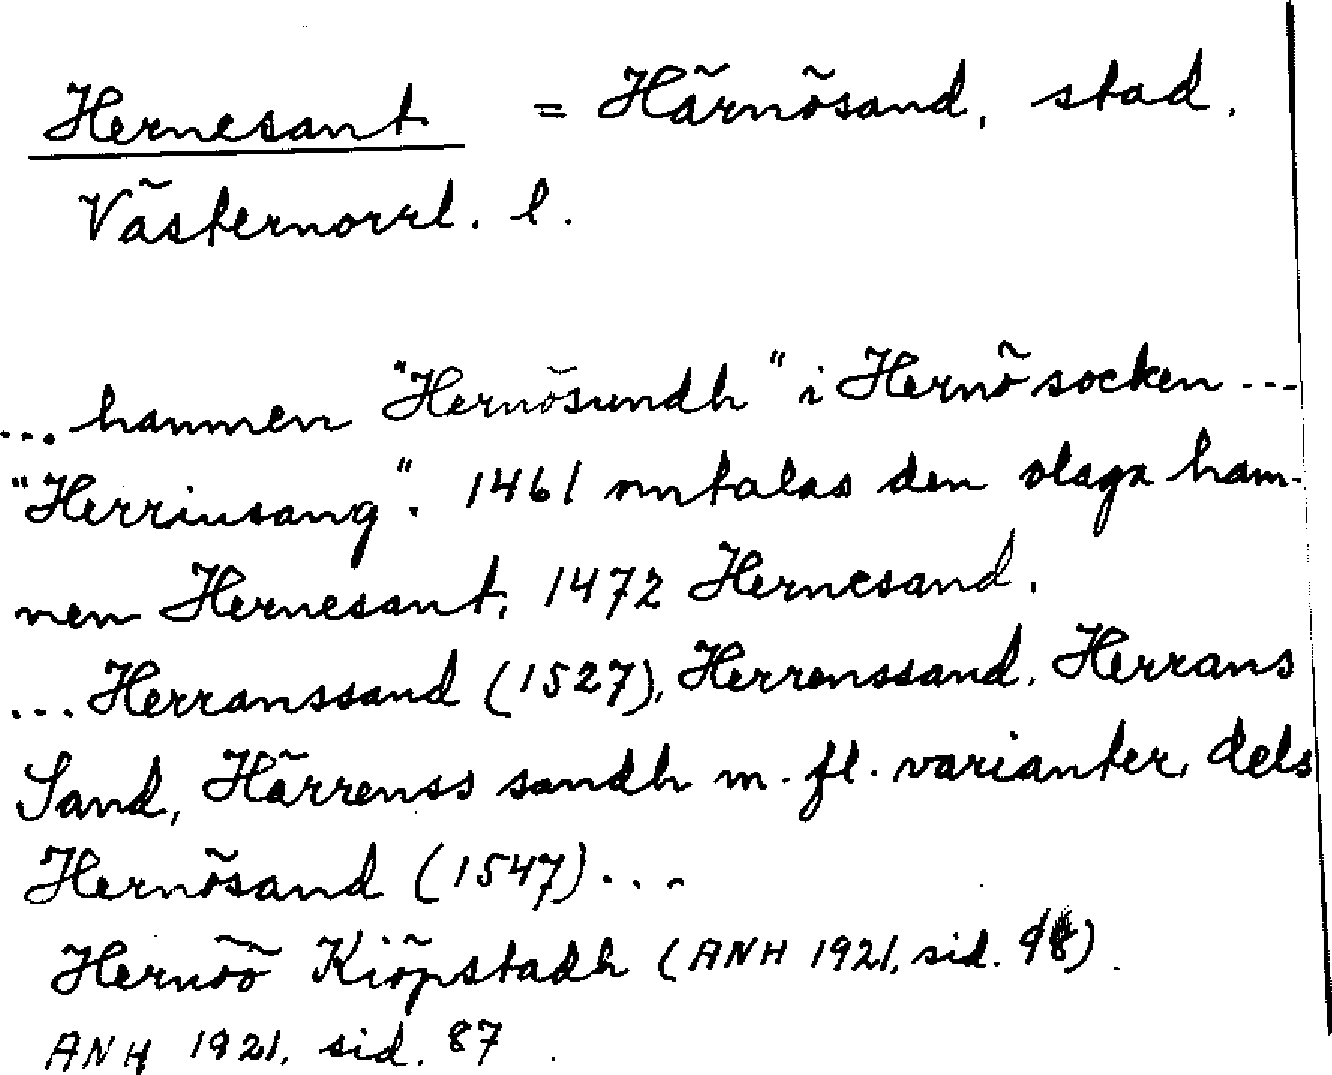 Hernesant = Härnösand, stad.
Västernorrl. l.
... hammen "Hernösundh" i Hernö socken ...
"Herrinsang". 1461 omtalas den olaga ham-
nen Hernesant, 1472 Hernesand.
... Herranssand (1527), Herrenssand, Herrans
Sand, Härrenss sandh m. fl. varianter, dels
Hernösand (1547) ...
Hernöö Kiöpstadh (ANH 1921, sid.
ANH 1921, sid. 87